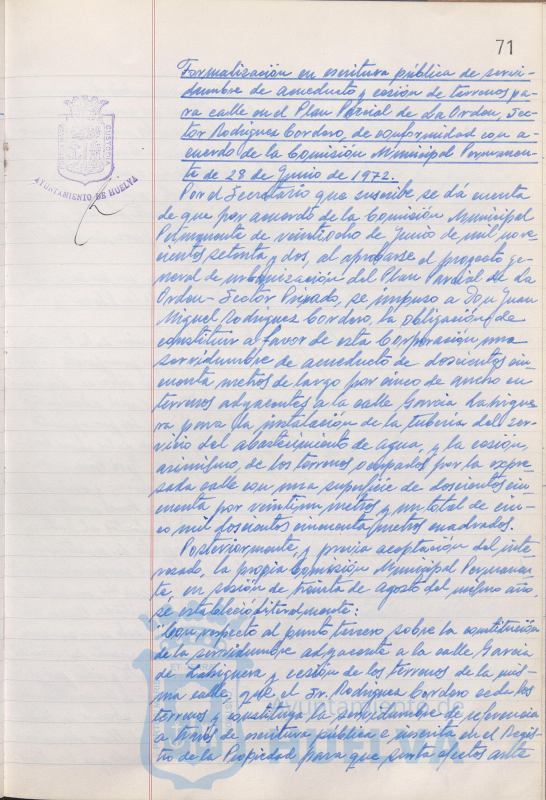 71
Formalización en escritura pública de servi-
dumbre de acueducto y cesión de terrenos pa-
ra calle en el Plan Parcial de La Orden, Sec-
tor Rodriguez Cordero, de conformidad con a-
cuerdo de la Comisión Municipal Permanen-
te de 28 de Junio de 1972.
Por el Secretario que suscribe se dá cuenta
de que por acuerdo de la Comisión Municipal
Permanente de veintiocho de Junio de mil nove-
cientos setenta y dos, al aprobarse el proyecto ge-
neral de urbanización del Plan Parcial de La
Orden-Sector Privado, se impuso a Don Juan
Miguel Rodriguez Cordero, la obligación de
constituir a favor de esta Corporación una
servidumbre de acueducto de doscientos cin-
cuenta metros de largo por cinco de ancho en
terrenos adyacentes a la calle Garcia Labrigue-
ra para la instalación de la tubería del ser-
vicio del abastecimiento de agua, y la cesión,
asimismo, de los terrenos ocupados por la expre-
sada calle con una superficie de doscientos cin-
cuenta por veintiun metros y un total de cin-
co mil doscientos cincuenta metros cuadrados.
Posteriormente, y previa aceptación del inte-
resado, la propia Comisión Municipal Permanen-
te, en sesión de treinta de agosto del mismo año,
se estableció literalmente:
"Con respecto al punto tercero sobre la constitución
de la servidumbre adyacente a la calle Garcia
de Labriguera y cesión de los terrenos de la mis-
ma calle, que el Sr. Rodriguez Cordero ceda los
terrenos y constituya la servidumbre de referencia
a través de escritura pública e inscrita en el Regis-
tro de la Propiedad para que surta efectos ante
AYUNTAMIENTO DE HUELVA
CUSTODIA
Ayuntamiento de
HUELVA